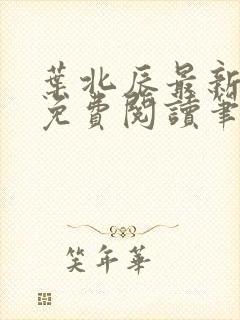 葉北辰最新
免費閱讀筆
笑年華